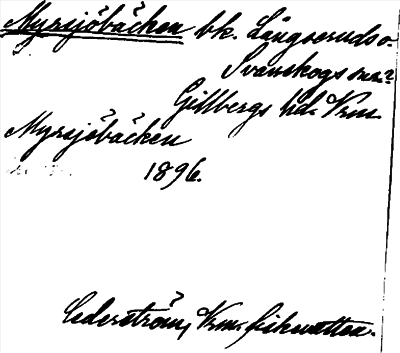 Myrsjöbäcken bk. Långseruds o.
Svanskogs snr?
Gillbergs hd. Vrm.
Myrsjöbäcken
1896.
Cederström, Vrm. fiskvatten.